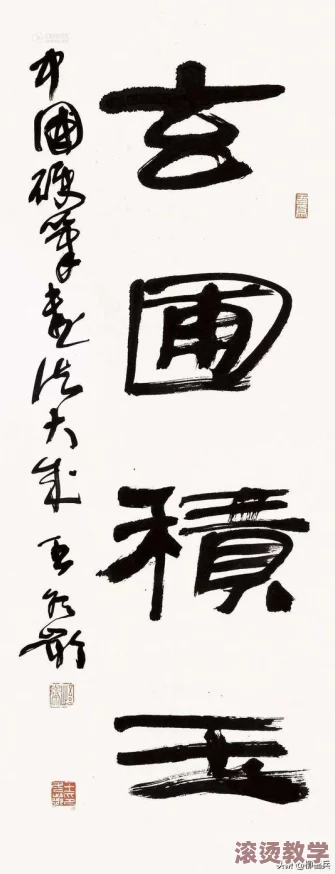 玄圃積玉
中國硬筆書法大成 王冬齡
滚烫教学